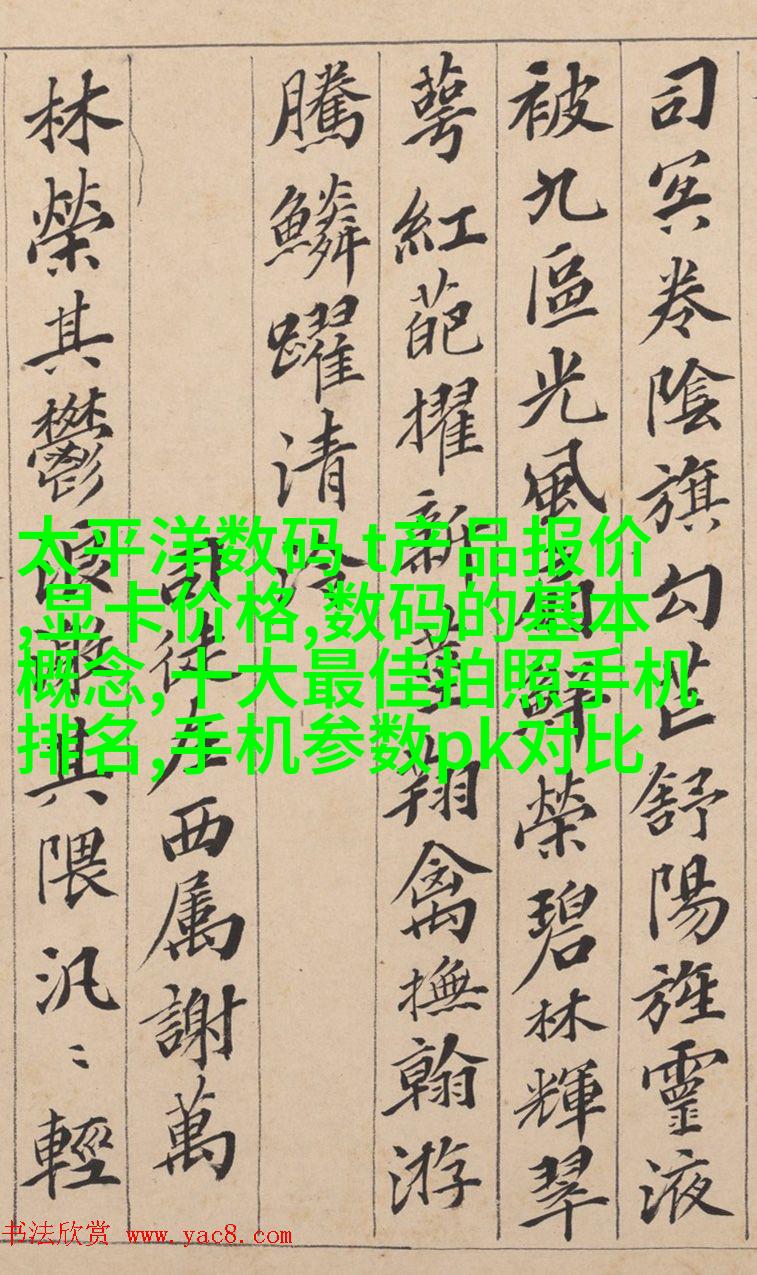 司冥卷陰旗勾芒舒陽旌靈液
被九區光風扇鮮榮碧林輝翠
萼紅葩擢新莖翔禽撫翰游
騰鱗躍清泠
司徒左西属謝萬
林榮其鬱浪激其隈汎〻輕
太平洋数码 t产品报价
,显卡价格,数码的基本
概念,十大最佳拍照手机
排名,手机参数pk对比
书法欣赏 www.yac8.com